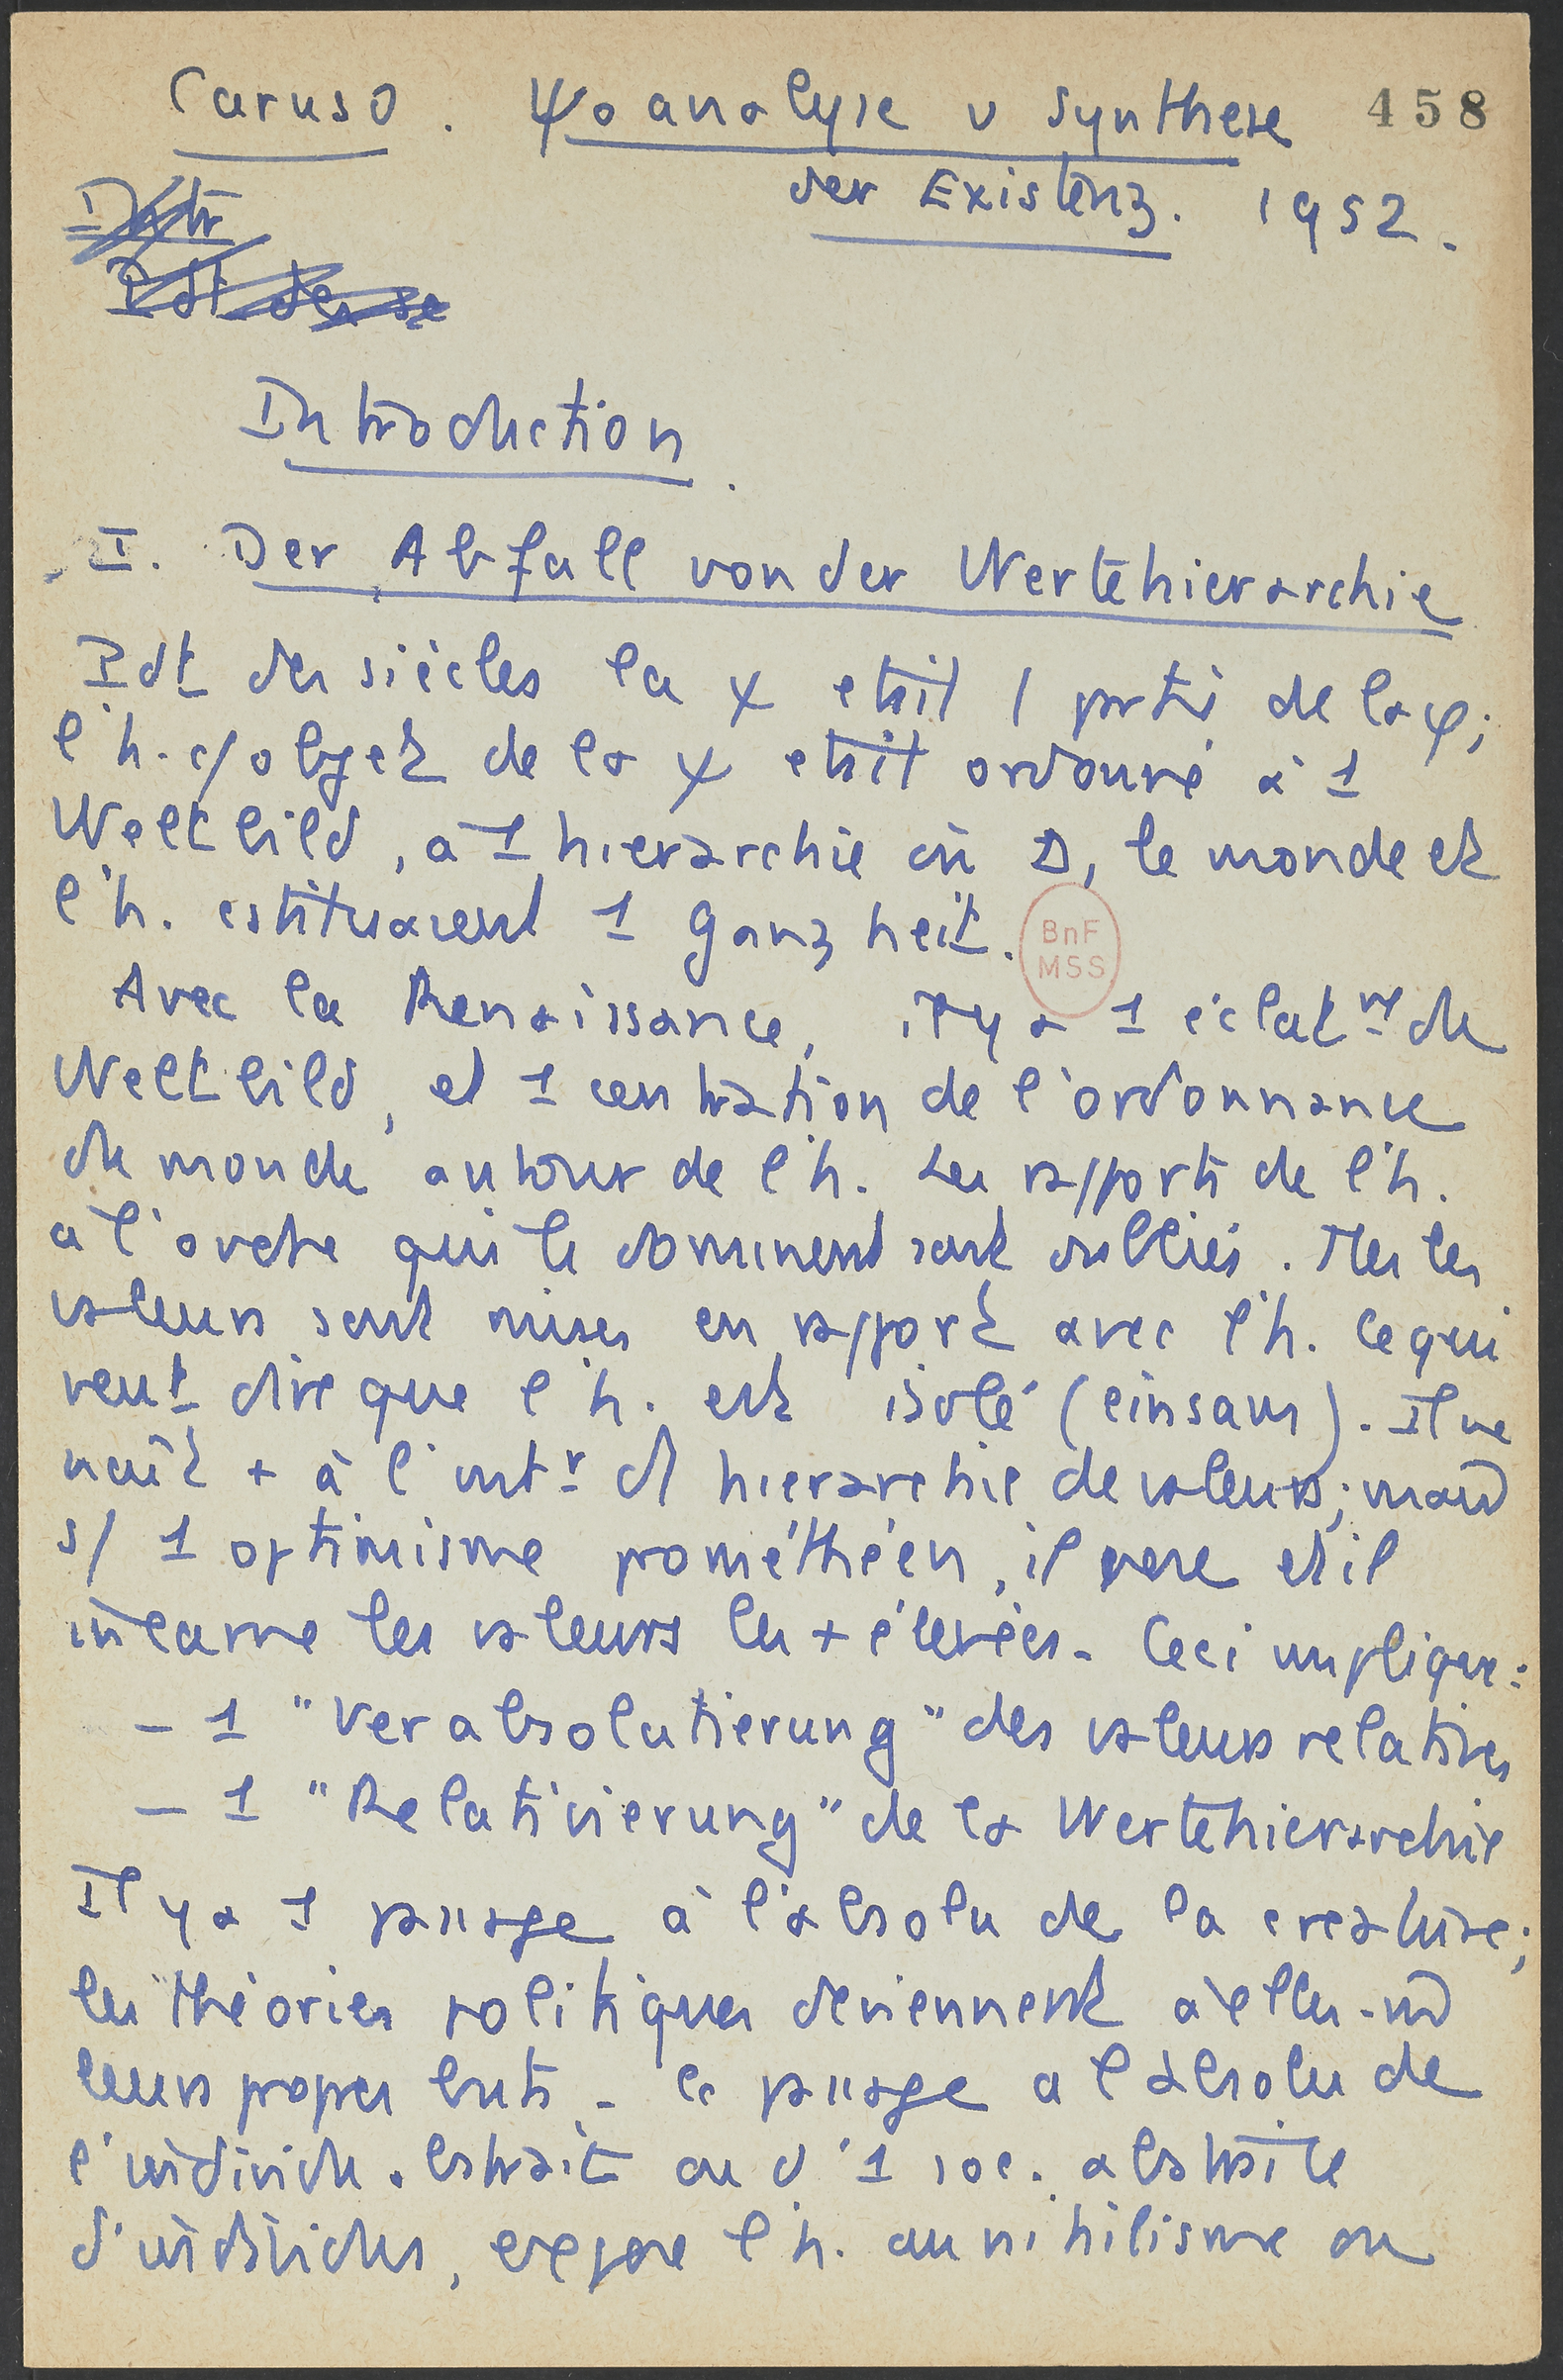 Caruso. Ψoanalyse u Synthese 458
der Existenz. 1952.
Introduction.
I. Der Abfall von der Wertehierarchie
Pdt des siècles la ψ etait 1 partie de la φ;
l'h. c/ objet de la ψ etait ordonné à 1
Weltbild, à 1 hierarchie où D, le monde et
l'h. cstituaient 1 Ganzheit.
BnF
MSS
Avec la Renaissance, il y a 1 éclatmt du
Weltbild, et 1 centration de l'ordonnance
du monde autour de l'h. Les rapports de l'h.
à l'ordre qui le dominent sont oubliés. Mes les
valeurs sont mises en rapport avec l'h. Ce qui
veut dire que l'h. est isolé (einsam). Il ne
naît + à l'intr d1 hierarchie de valeurs; mais
s/ 1 optimisme prométhéen, il pose et il
incarne les valeurs les + élevées. Ceci implique:
– 1 "Verabsolutierung" des valeurs relatives
– 1 "Relativierung" de la Wertehierarchie
Il y a 1 passage à l'absolu de la creature;
les théories politiques deviennent à elles-m̂
leurs propres buts. - Ce passage a l'absolu de
l'individu abstrait ou d'1 soc. abstraite
d'individus, expose l'h. au nihilisme ou